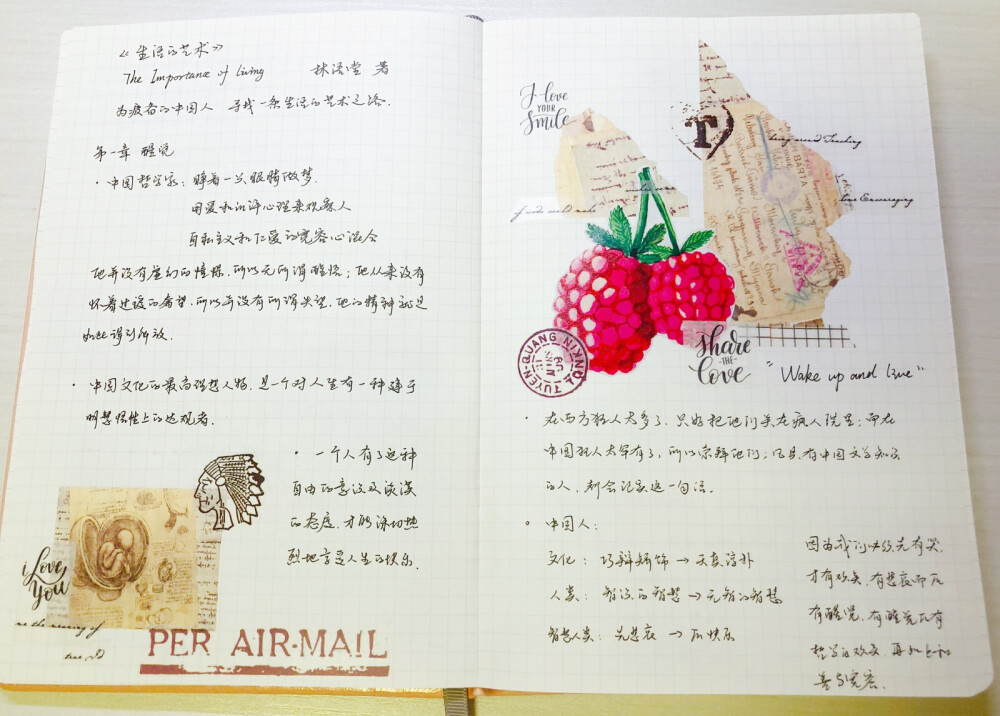 《生活的艺术》
The Importance of Living 林语堂 著
为疲者的中国人 寻找一条生活的艺术之路.
第一章 醒觉
· 中国哲学家: 睁着一只眼睛做梦.
用爱和讽评心理来观察人
自私主义和仁爱的宽容心混合
他并没有虚幻的憧憬, 所以无所谓醒悟; 他从来没有
怀着过度的希望, 所以并没有所谓失望. 他的精神就是
如此得到解放.
· 中国文化的最高理想人物, 是一个对人生有一种建于
明慧悟性上的达观者.
· 一个人有了这种
自由的意识及淡漠
的态度, 才能深切热
烈地享受人生的快乐.
i Love
You
PER AIR-MAIL
I love
YOUR
Smile
T
BARTA
TUYEN-QUANG TONKIN
share
-THE-
Love
"Wake up and live"
· 在西方狂人太多了, 只好把他们关在疯人院里; 而在
中国狂人太罕有了, 所以崇拜他们; 凡具有中国文学知识
的人, 都会证实这一句话.
· 中国人:
文化: 巧辩矫饰 → 天真淳朴
人类: 智识的智慧 → 无智的智慧
智慧人类: 先悲哀 → 后快乐
因为我们必须先有哭,
才有欢笑, 有悲哀而后
有醒觉, 有醒觉而后有
哲学的欢笑, 再加上和
善与宽容.